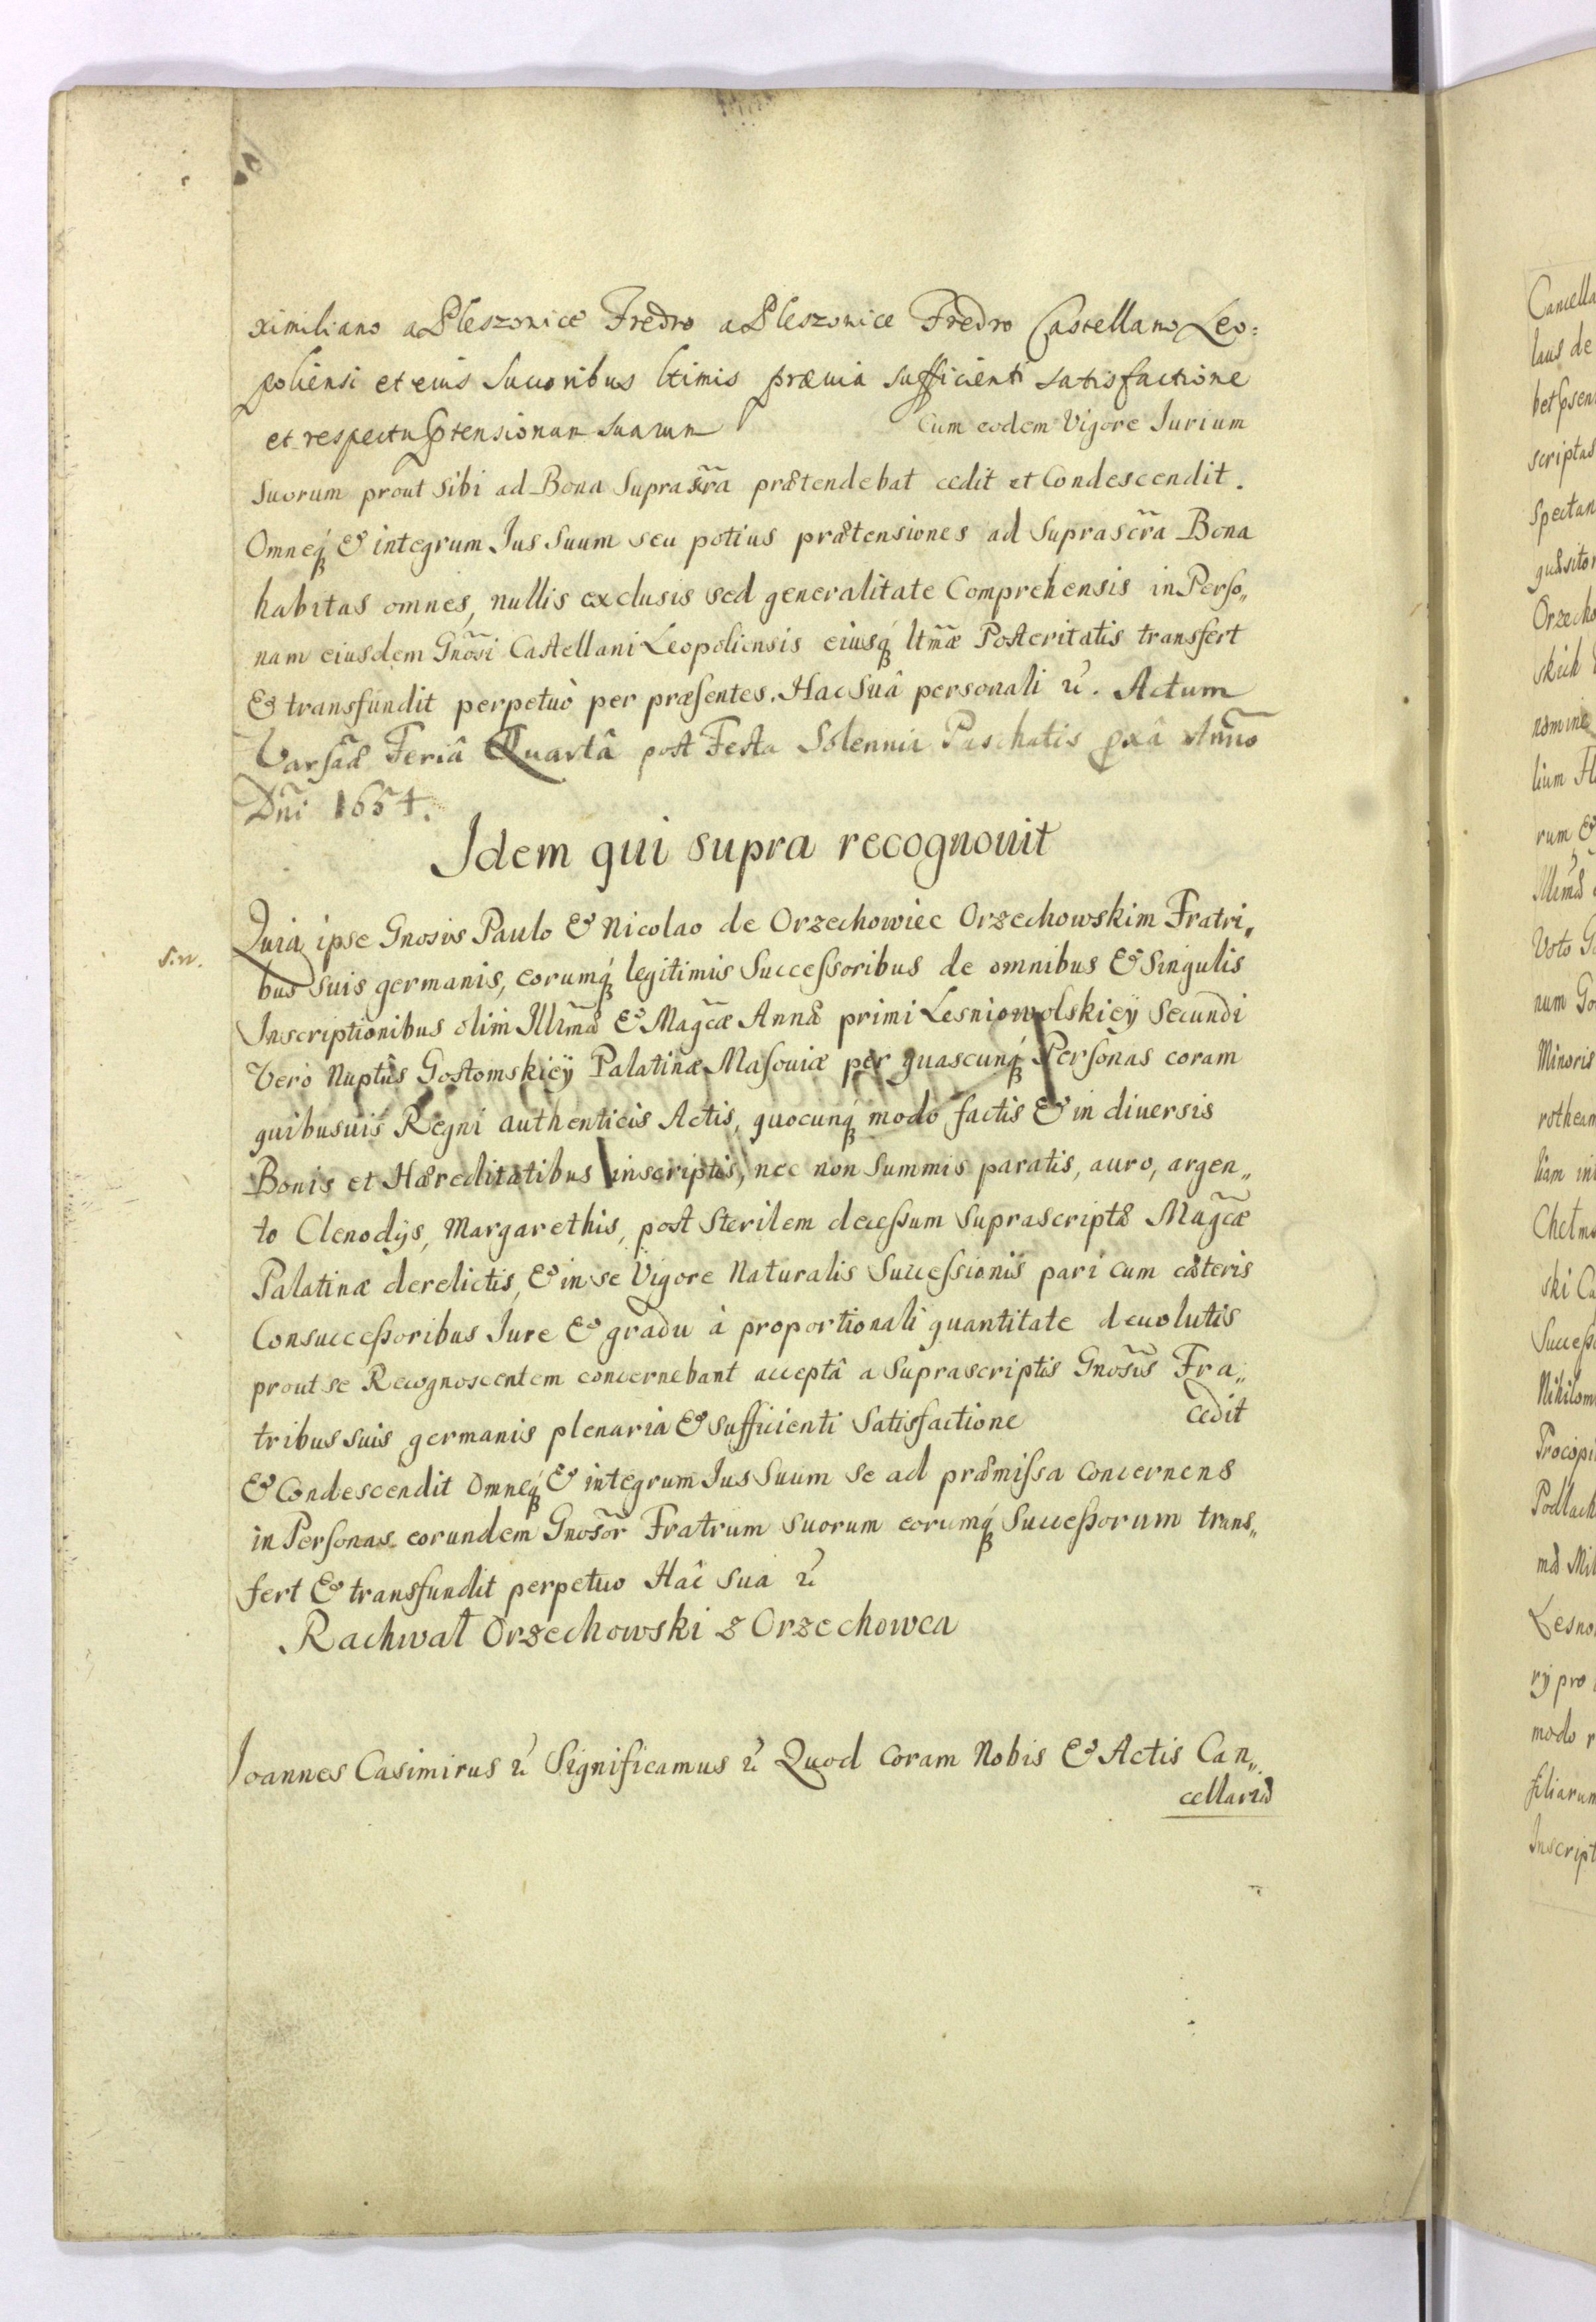 ximiliano a Pleszowice Fredro a Pleszowice Fredro Castellano Leo:
poliensi et eius Succoribus ltimis præuia sufficienti satisfactione
et respectu ptensionum suarum Cum eodem Vigore Jurium
Suorum prout sibi ad Bona Suprascr̃a prætendebat cedit et Condescendit.
Omneq́ & integrum Jus Suum seu potius prætensiones ad Suprascr̃a Bona
habitas omnes, nullis exclusis sed generalitate Comprehensis in Perso„
nam eiusdem Gnõsi Castellani Leopoliensis eiusq́ ltm̃æ Posteritatis transfert
& transfundit perpetuò per præsentes. Hac Suâ personali &. Actum
Varsãæ Feriâ Quartâ post Festa Solennia Paschatis pxâ Anño
Dñi 1654.
Idem qui supra recognouit
s.w.
Quia ipse Gnosis Paulo & Nicolao de Orzechowiec Orzechowskim Fratri„
bus suis germanis, eorumq́ legitimis Successoribus de omnibus & Singulis
Inscriptionibus olim Illm̃æ & Magc̃æ Annæ primi Lesniowolskiey Secundi
Vero Nuptijs Gostomskiey Palatinæ Masouiæ per quascunq́ Personas coram
quibusuis Regni authenticis Actis, quocunq́ modo factis & in diuersis
Bonis et Hæreditatibus inscriptis, nec non Summis paratis, auro, argen„
to Clenodijs, Margarethis, post Sterilem decessum Suprascriptæ Magc̃æ
Palatinæ derelictis, & in se Vigore Naturalis Successionis pari cum cæteris
Consuccessoribus Jure & gradu à proportionali quantitate deuolutis
prout se Recognoscentem concernebant acceptâ a Suprascriptis Gnosĩs Fra„
tribus suis germanis plenaria & Sufficienti Satisfactione cedit
& Condescendit Omneq́ & integrum Jus Suum se ad præmissa concernens
in Personas eorundem Gnosõr Fratrum Suorum eorumq́ Successorum trans„
fert & transfundit perpetuo Hâc sua &
Rachwał Orzechowski z Orzechowca
Joannes Casimirus & Significamus & Quod Coram Nobis & Actis Can„
cellariæ